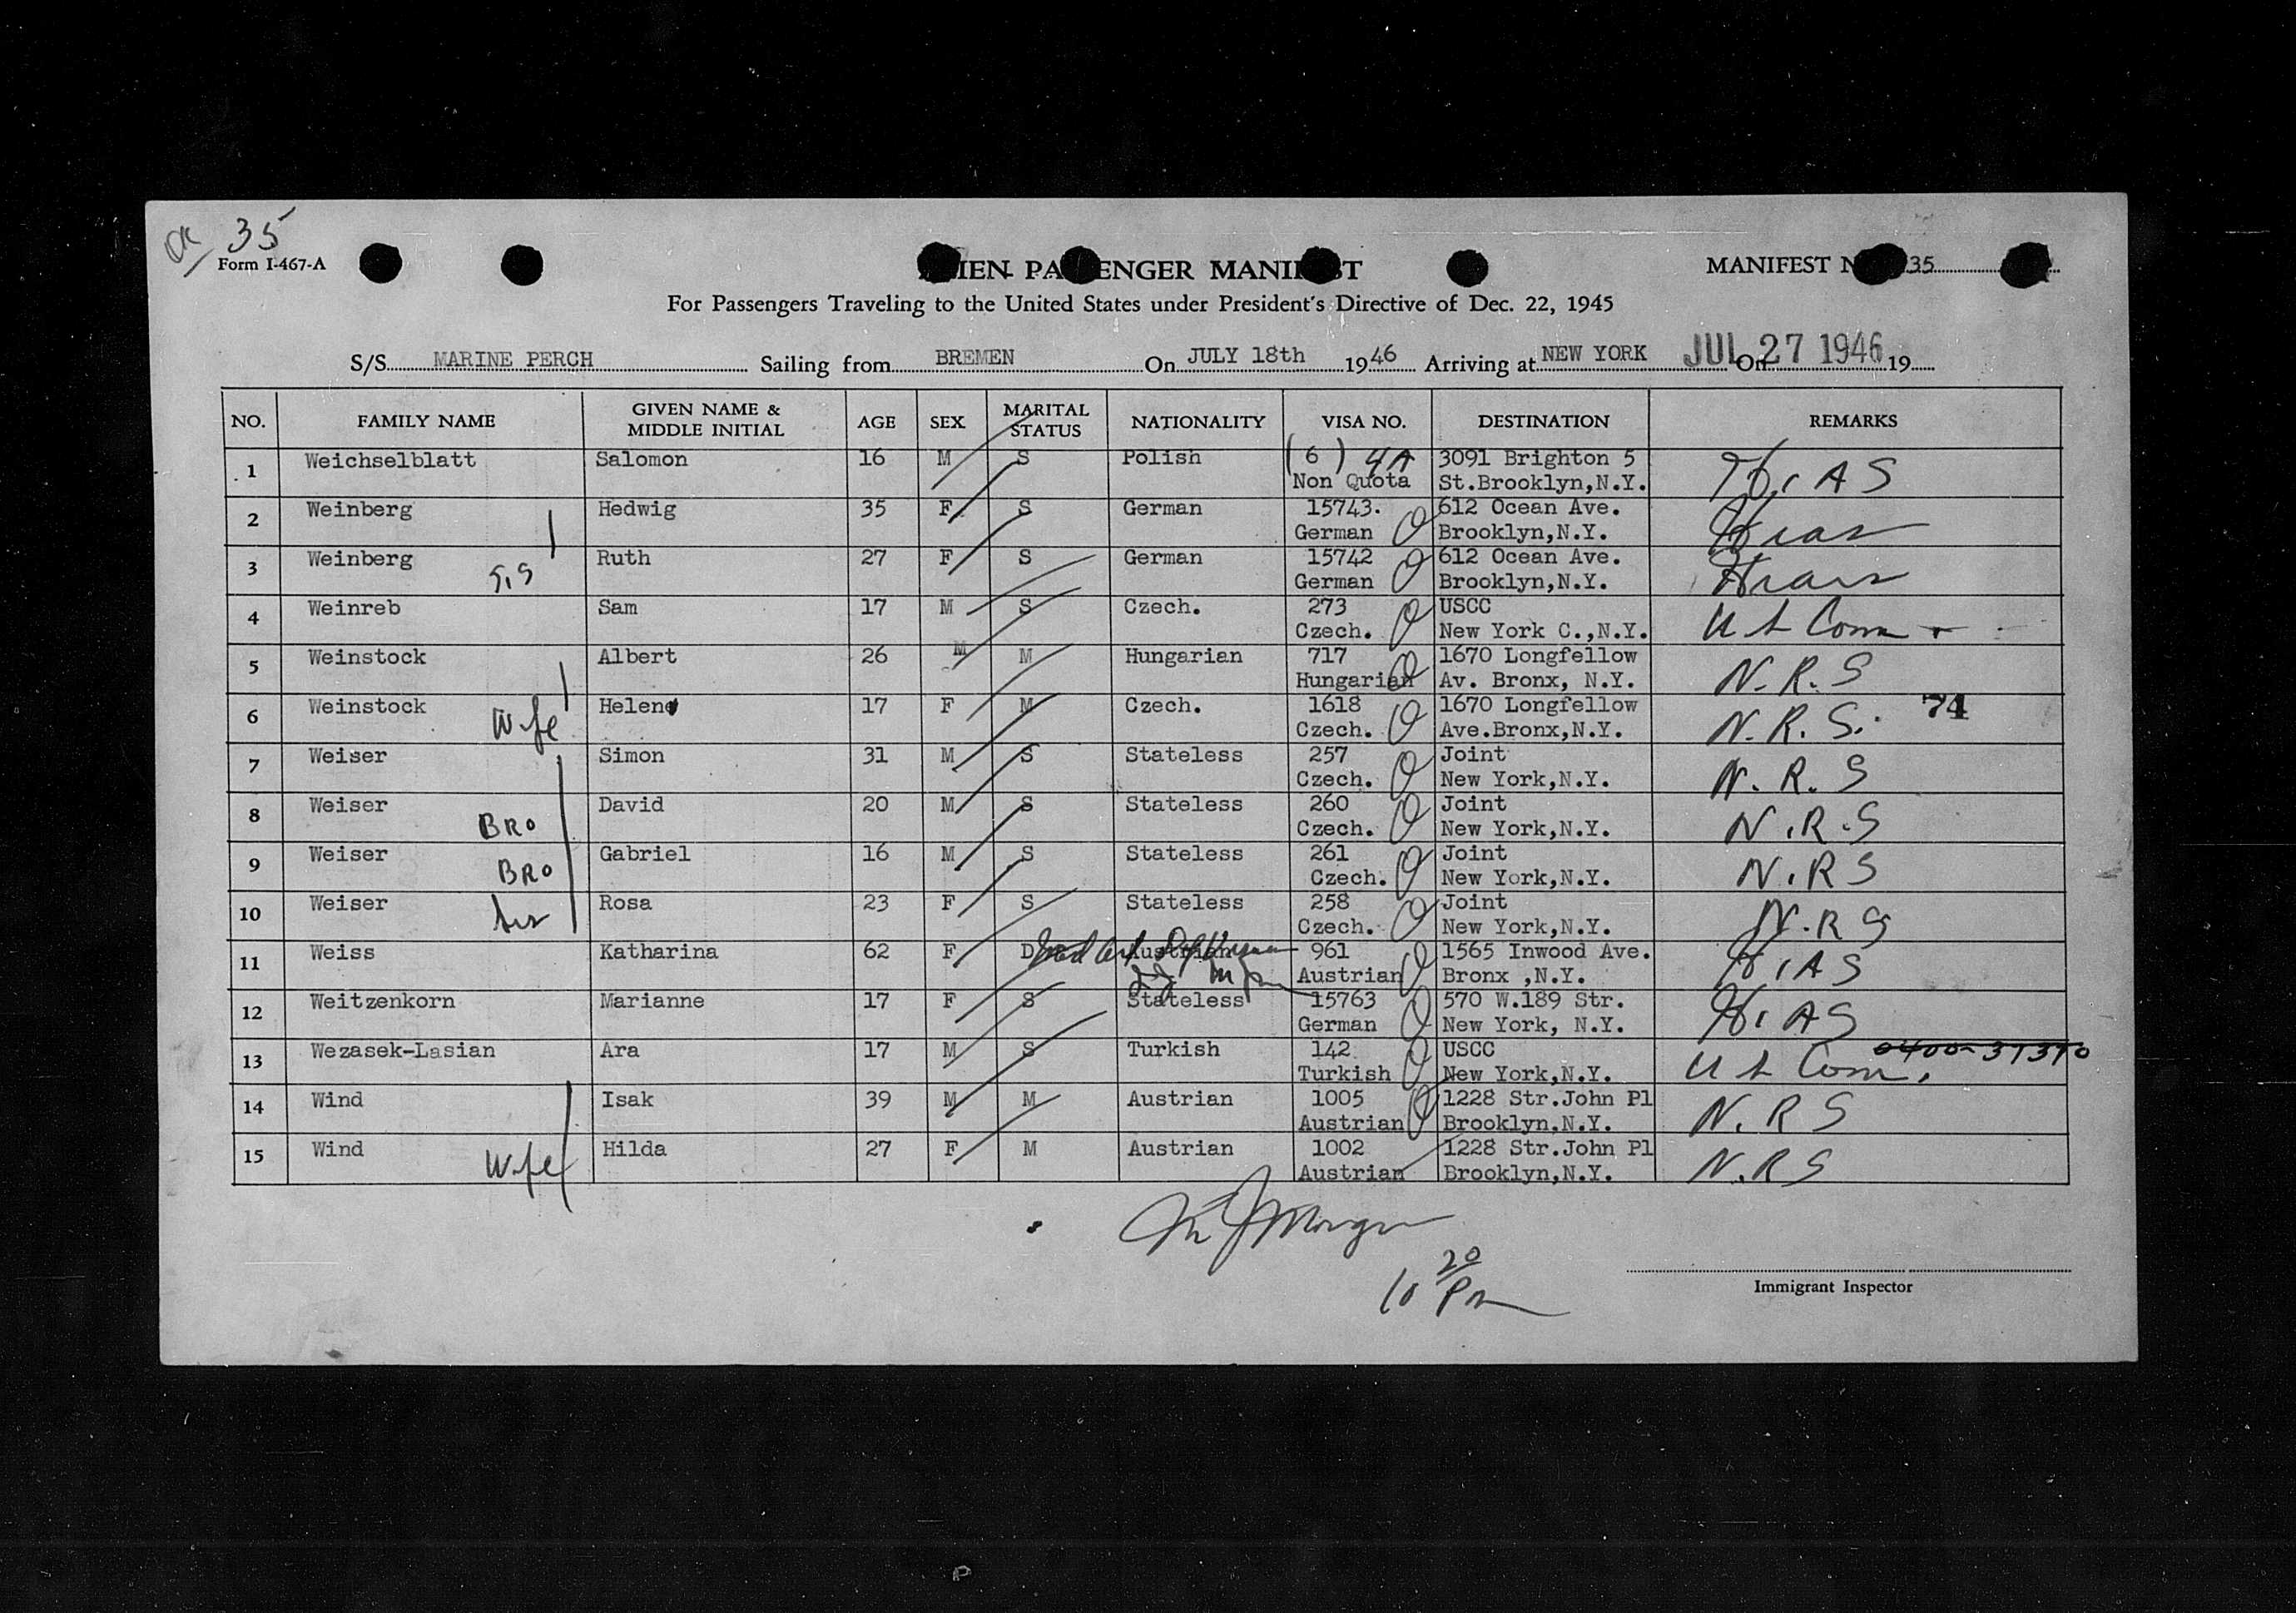 OK 35
Form I-467-A
IEN PA ENGER MANI T
MANIFEST N 35
For Passengers Traveling to the United States under President's Directive of Dec. 22, 1945
S/S MARINE PERCH Sailing from BREMEN On JULY 18th 1946 Arriving at NEW YORK On JUL 27 1946 19
NO. FAMILY NAME GIVEN NAME & MIDDLE INITIAL AGE SEX MARITAL STATUS NATIONALITY VISA NO. DESTINATION REMARKS
1 Weichselblatt Salomon 16 M S Polish (6) 4A 3091 Brighton 5 HIAS
Non Quota St.Brooklyn,N.Y.
2 Weinberg Hedwig 35 F S German 15743. 612 Ocean Ave. Hias
German Brooklyn,N.Y.
3 Weinberg Sis Ruth 27 F S German 15742 612 Ocean Ave. Hias
German Brooklyn,N.Y.
4 Weinreb Sam 17 M S Czech. 273 USCC U S Com
Czech. New York C.,N.Y.
5 Weinstock Albert 26 M M Hungarian 717 1670 Longfellow N.R.S
Hungarian Av. Bronx, N.Y.
6 Weinstock Wife Helene 17 F M Czech. 1618 1670 Longfellow N.R.S. 74
Czech. Ave.Bronx,N.Y.
7 Weiser Simon 31 M S Stateless 257 Joint N.R.S
Czech. New York,N.Y.
8 Weiser BRO David 20 M S Stateless 260 Joint N.R.S
Czech. New York,N.Y.
9 Weiser BRO Gabriel 16 M S Stateless 261 Joint N.RS
Czech. New York,N.Y.
10 Weiser Sis Rosa 23 F S Stateless 258 Joint N.RS
Czech. New York,N.Y.
11 Weiss Katharina 62 F D Austrian 961 1565 Inwood Ave. HIAS
Austrian Bronx ,N.Y.
12 Weitzenkorn Marianne 17 F S Stateless 15763 570 W.189 Str. HIAS
German New York, N.Y.
13 Wezasek-Lasian Ara 17 M S Turkish 142 USCC U S Com. 0400-31370
Turkish New York,N.Y.
14 Wind Isak 39 M M Austrian 1005 1228 Str.John Pl N.RS
Austrian Brooklyn,N.Y.
15 Wind Wife Hilda 27 F M Austrian 1002 1228 Str.John Pl N.RS
Austrian Brooklyn,N.Y.
Morgan
10 20 Pm
Immigrant Inspector